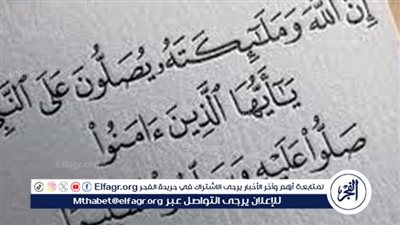 إِنَّ اللَّهَ وَمَلَٰٓئِكَتَهُۥ يُصَلُّونَ عَلَى
يَٰٓأَيُّهَا الَّذِينَ ءَامَنُوا۟
صَلُّوا۟ عَلَيْهِ
الفجر
Elfagr.org
الفجر
Elfagr.org
لمتابعة أهم وآخر الأخبار يرجى الاشتراك في جريدة الفجر Elfagr.org
للإعلان يرجى التواصل عبر Mthabet@elfagr.org
الفجر